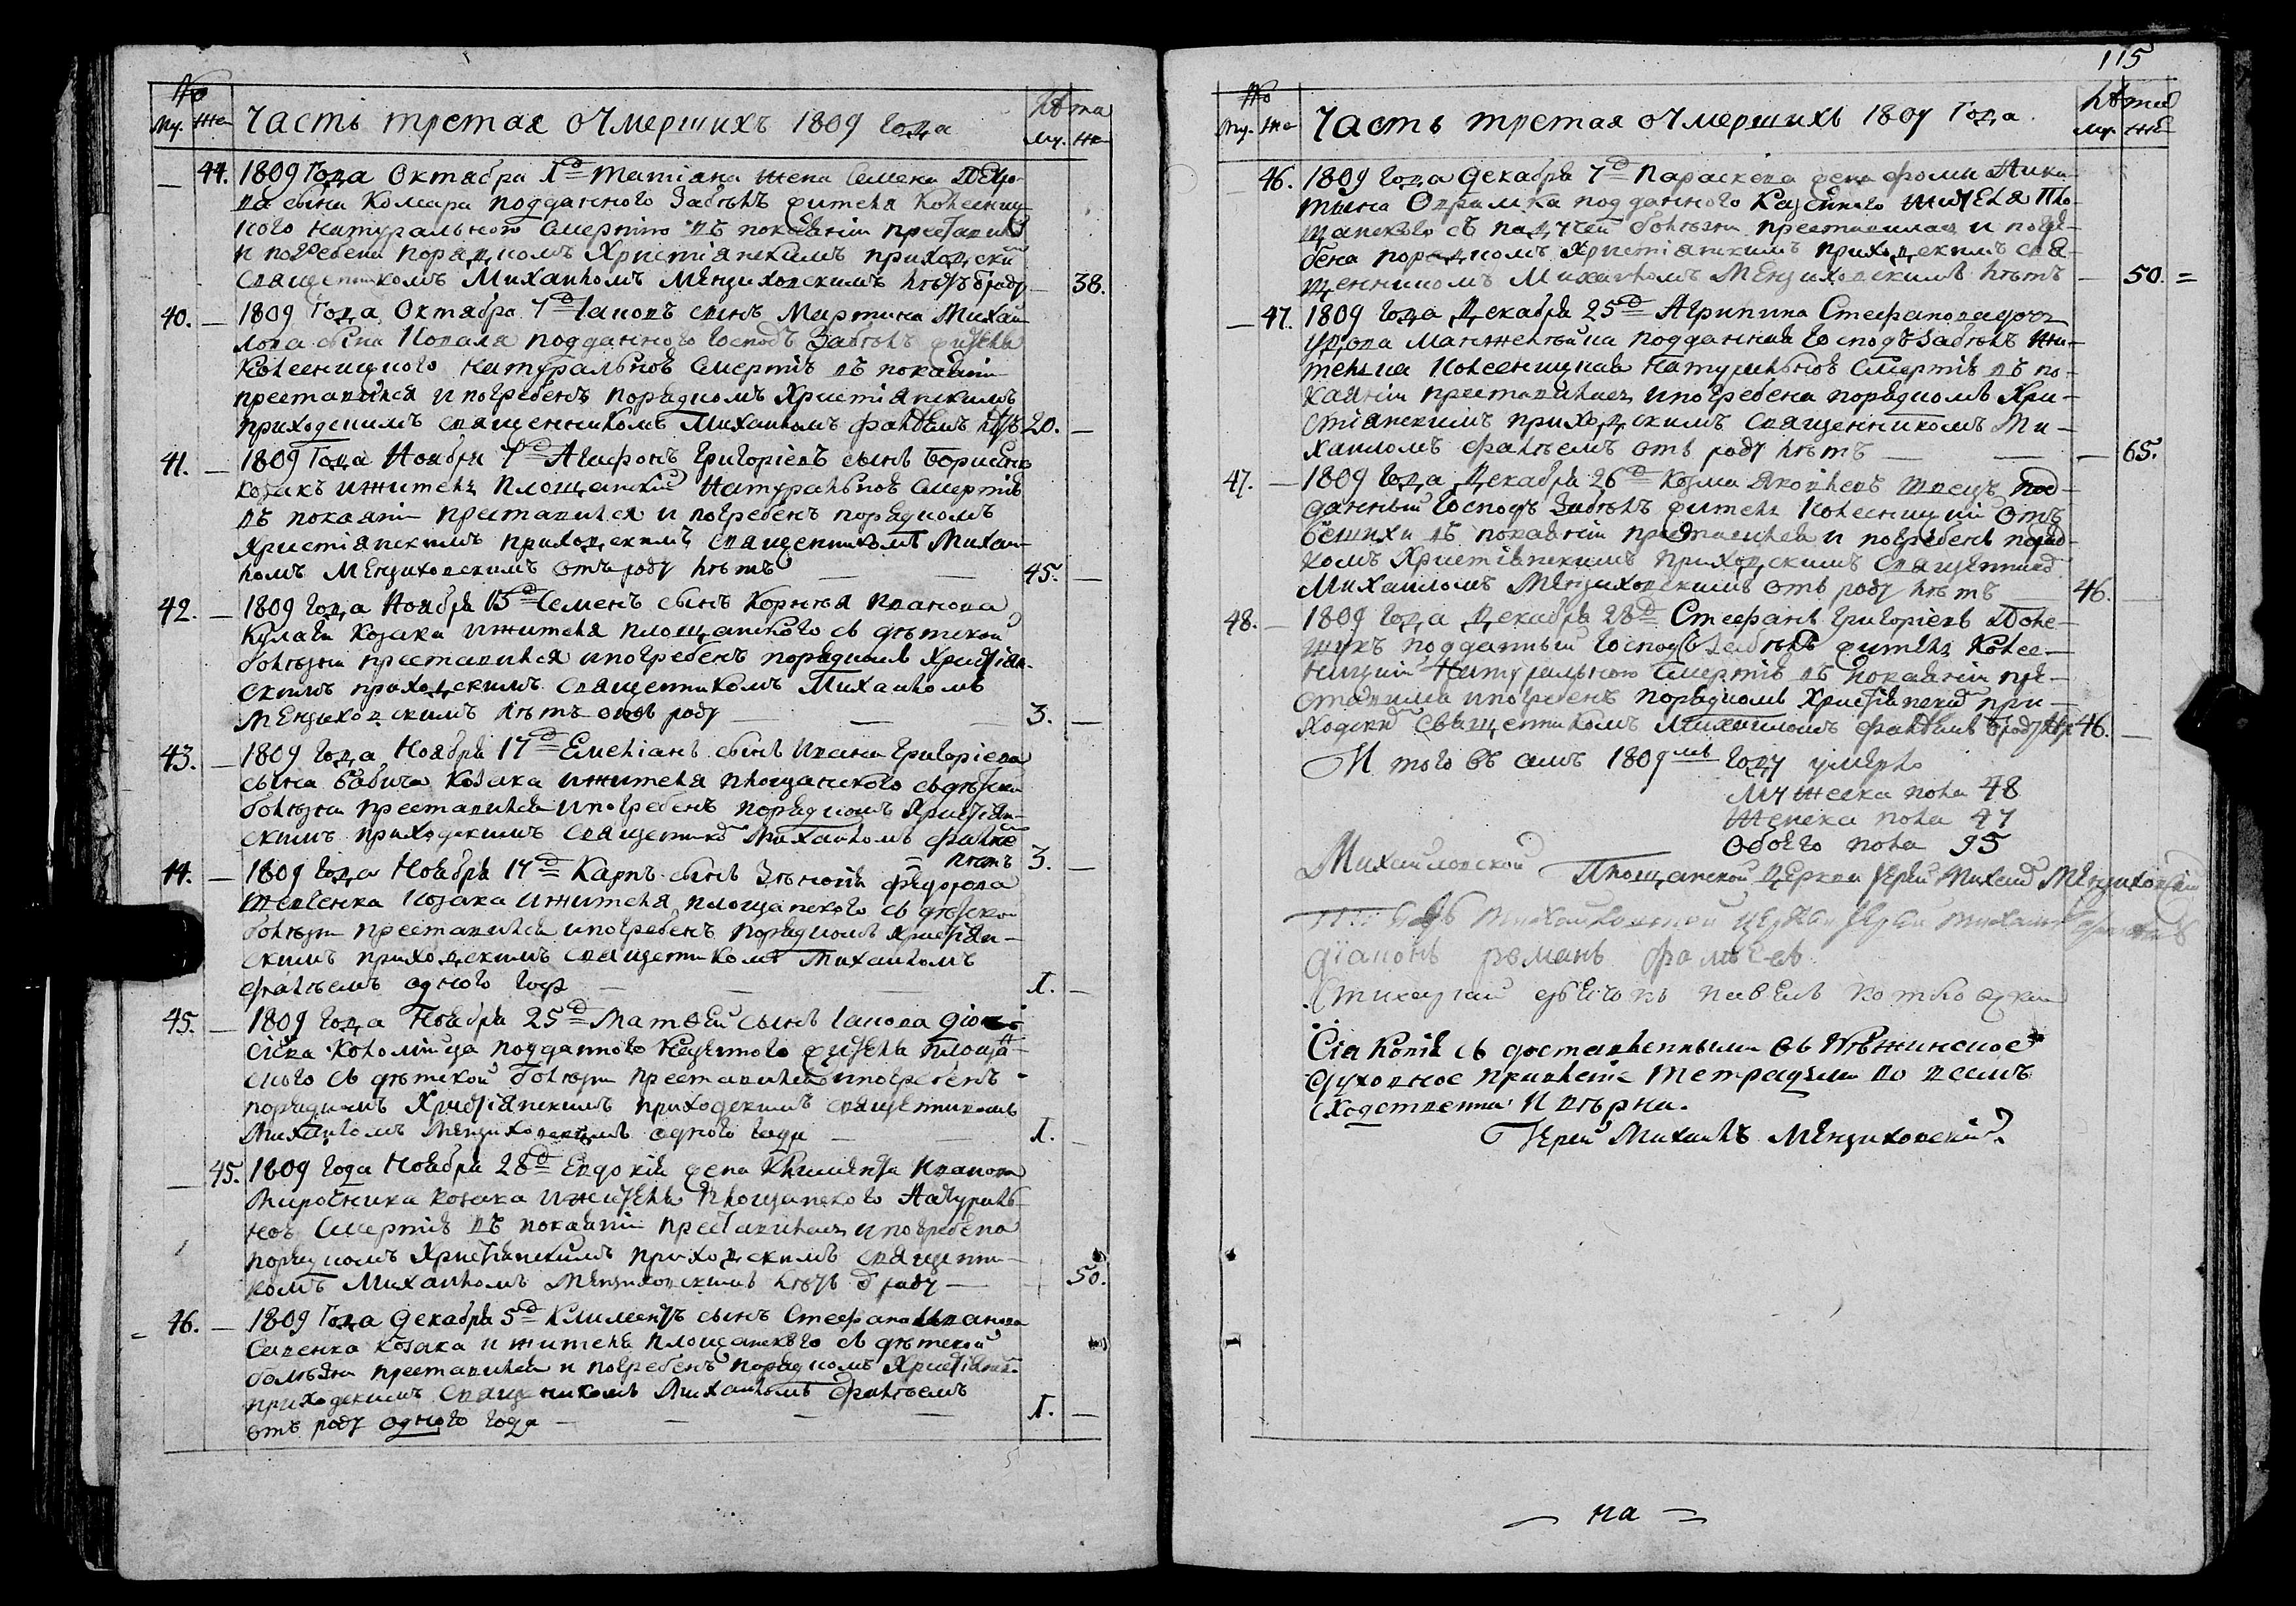 №
Му. Же
Часть третая о умершихъ 1809 Года
Лѣта
Му. Же
44. 1809 Года Октября 1^д Татіана жена Семена Петро-
ва сына Комара подданного Забѣлъ жителя Колесниц-
кого натуральною смертію въ покаяніи преставил
и погребена порядкомъ Христіанскимъ приходски
священикомъ Михаиломъ Мензиховскимъ лѣтъ ѿ роду 38.
40. 1809 Года Октября 7^д Іаковъ сынъ Мартина Михай-
лова сына Коваля подданного господъ Забѣлъ жителя
Колесницкого натуральноѣ смертіѣ въ покаяніи
преставился и погребенъ порядкомъ Христіанскимъ
приходскимъ священникомъ Михаиломъ Фалѣемъ лѣтъ 20.
41. 1809 Года Ноября 7^д Агафонъ Григоріевъ сынъ Борисенко
козакъ и житель Площанскій натуральноѣ смертіѣ
въ покаяніи преставился и погребенъ порядкомъ
Христіанскимъ приходскимъ священникомъ Михаи-
ломъ Мензиховскимъ отъ роду лѣтъ 45.
42. 1809 Года Ноября 13^д Семенъ сынъ Корнѣя Иванова
Кулаги козака и жителя площанского съ дѣтской
болѣзни преставился и погребенъ порядкомъ Христіан-
скимъ приходскимъ священникомъ Михаиломъ
Мензиховскимъ лѣтъ отъ роду 3.
43. 1809 Года Ноября 17^д Емеліанъ сынъ Ивана Григоріева
сына Бабича козака и жителя площанского съ дѣтской
болѣзни преставился и погребенъ порядкомъ Христіан-
скимъ приходскимъ священнико Михаиломъ Фалѣе
лѣтъ 3.
44. 1809 Года Ноября 17^д Карпъ сынъ Зѣновія Федорова
Шевченка козака и жителя площанского съ дѣтской
болѣзни преставился и погребенъ порядкомъ Христіан-
скимъ приходскимъ священникомъ Михаиломъ
Фалѣемъ одного году 1.
45. 1809 Года Ноября 25^д Матѳей сынъ Іакова
Коломійца подданного казенного жителя площан-
ского съ дѣтской болѣзни преставился и погребенъ
порядкомъ Христіанскимъ приходскимъ священникомъ
Михаиломъ Мензиховскимъ одного года 1.
45. 1809 Года Ноября 28^д Евдокія жена Климентія Иванова
Мирочника козака и жителя Площанского натураль-
ноѣ смертіѣ въ покаяніи преставилась и погребена
порядкомъ Христіанскимъ приходскимъ священни-
комъ Михаиломъ Мензиховскимъ лѣтъ ѿ роду 50.
46. 1809 Года Декабря 5^д Климентъ сынъ Стефана Иванова
Савенка козака и жителя площанского съ дѣтской
болѣзни преставился и погребенъ порядкомъ Христіанск.
приходскимъ священикомъ Михаиломъ Фалѣемъ
отъ роду одного года 1.
115
№
Му. Же
Часть третая о умершихъ 1809 Года.
Лѣта
Му. Же
46. 1809 года Декабря 7^д Параскева жена Фомы Ники-
тина подданного Казенного жителя Пло-
щанского съ падучей болѣзни преставилась и погре-
бена порядкомъ Христіанскимъ приходскимъ свя-
щенникомъ Михаиломъ Мензиховскимъ лѣтъ 50.
47. 1809 года Декабря 25^д Агрипина Стефанова доч
удова подданная господъ Забѣлъ жи-
телка Колесницкая натуральноѣ смертіѣ въ по-
каяніи преставилась и погребена порядкомъ Хри-
стіанскимъ приходскимъ священникомъ Ми-
хаиломъ Фалѣемъ отъ роду лѣтъ 65.
47. 1809 года Декабря 26^д Козма Яковлевъ Швецъ под-
данный господъ Забѣлъ житель Колесницкій отъ
въ покаяніи преставился и погребенъ поряд-
комъ Христіанскимъ приходскимъ священнико
Михаиломъ Мензиховскимъ отъ роду лѣтъ 46.
48. 1809 года Декабря 28^д Стефанъ Григоріевъ Доне-
подданный господъ Забѣлъ житель Колес-
ницкій натуральною смертіѣ въ покаяніи пре-
ставился и погребенъ порядкомъ Христіански при-
ходски священникомъ Михаиломъ Фалѣемъ ѿ роду лѣтъ 46.
И того въ семъ 1809^мъ году умерло
Мужеска пола 48
Женска пола 47
Обоего пола 95
Михайловской Площанской Церкви Іерей Михаилъ Мензиховскій
Михайловской церкви Іерей Михаилъ
діаконъ романъ
Стихарній дьячокъ павелъ
Сія копія съ доставленными въ Нѣжинское
Духовное правленіе тетрадьми во всемъ
сходственна и вѣрна.
Іерей Михаилъ Мензиховскій
на